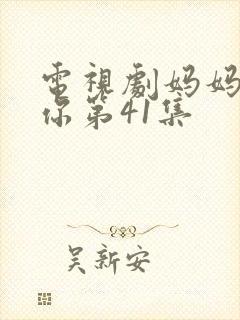 電視劇妈妈
你第41集
吴新安